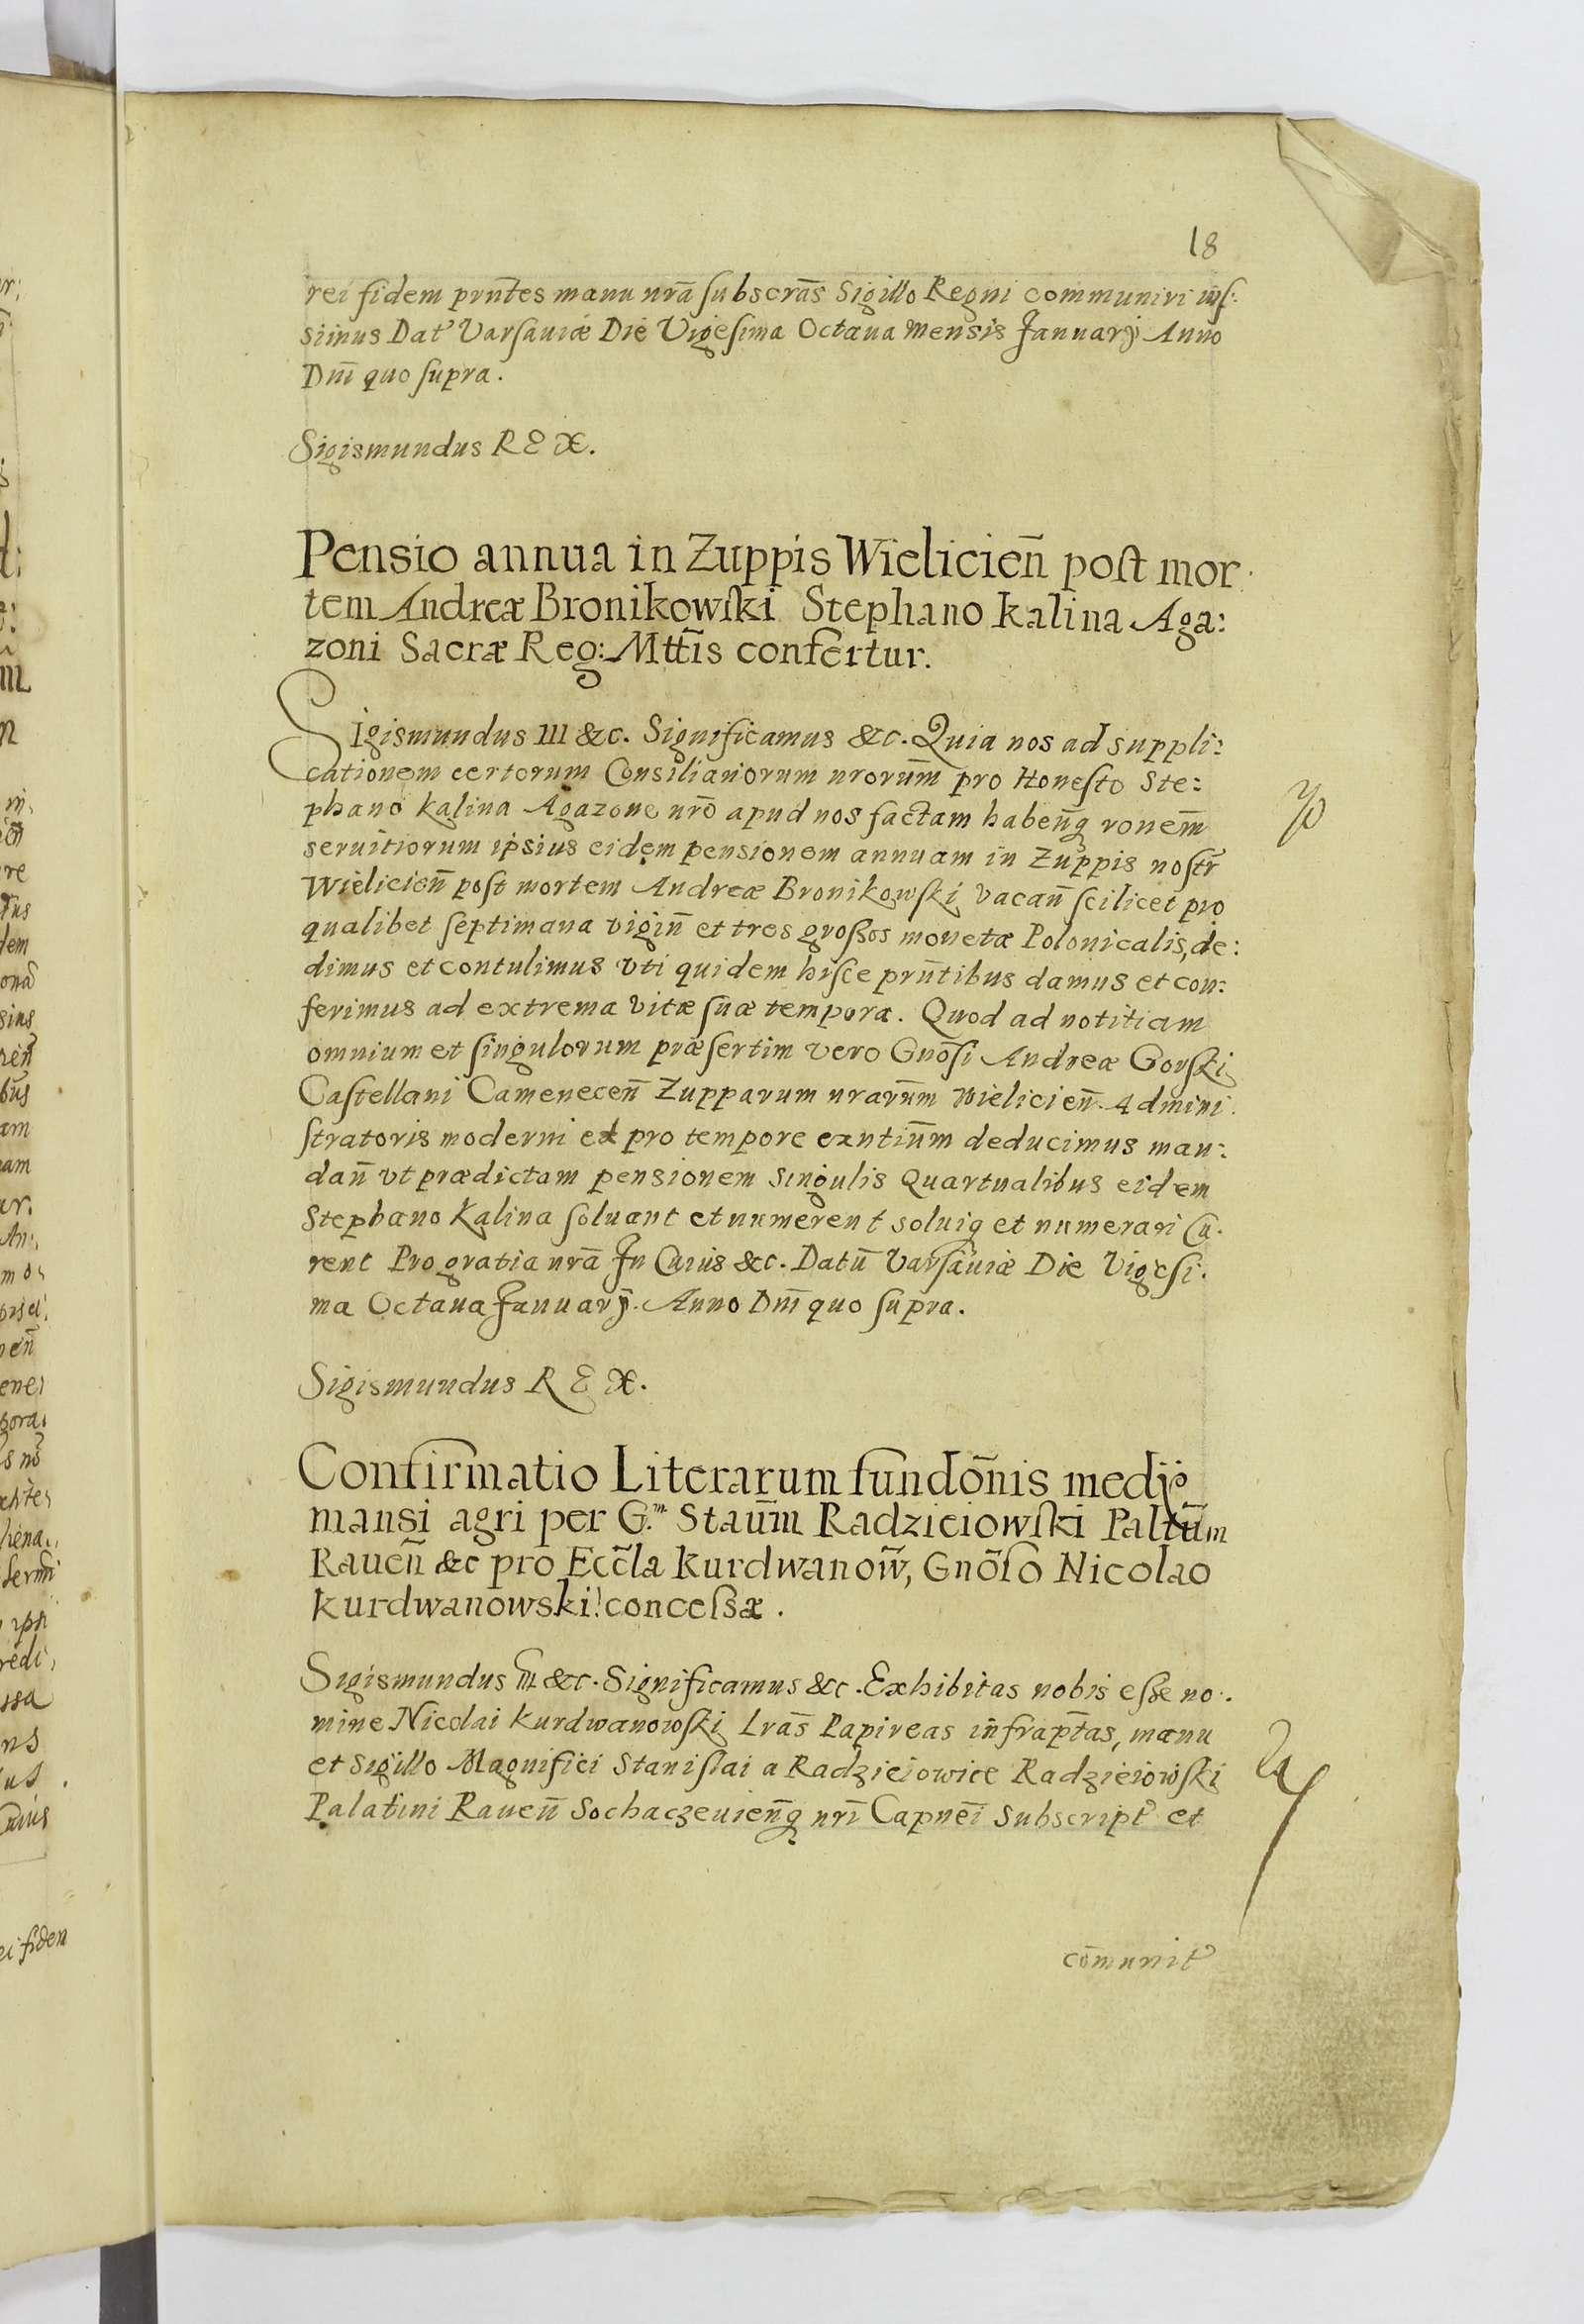 18
rei fidem prñtes manu nrã subscrãs Sigillo Regni communiri iuſ:
simus Dat Varsauiæ Die Vigesima Octaua mensis Januarij Anno
Dñi quo supra.
Sigismundus REX.
Pensio annua in Zuppis Wielicieñ post mor
tem Andreæ Bronikowski Stephano Kalina Aga:
zoni Sacræ Reg: Mttis confertur.
Sigismundus III &c. Significamus &c. Quia nos ad suppli:
cationem certorum Consiliariorum nrorum pro Honesto Ste:
phano Kalina Agazone nrõ apud nos factam habenq ronem
seruitiorum ipsius eidem pensionem annuam in Zuppis nostr
Wielicieñ post mortem Andreæ Bronikowski vacañ scilicet pro
qualibet septimana vigiñ et tres großos monetæ Polonicalis, de:
dimus et contulimus vti quidem hisce prñtibus damus et con:
ferimus ad extrema vitæ suæ tempora. Quod ad notitiam
omnium et singulorum præsertim vero Gnõsi Andreæ Gorski
Castellani Cameneceñ Zupparum nrarum Wielicieñ Admini
stratoris moderni et pro tempore exntium deducimus man:
dañ vt prædictam pensionem singulis Quartualibus eidem
Stephano Kalina soluant et numerent soluiq et numerari Cu.
rent Pro gratia nrã In Cuius &c. Datũ Varsauiæ Die Vigesi.
ma Octaua Januarij. Anno Dñi quo supra.
Sigismundus REX.
Confirmatio Literarum fundõnis medij
mansi agri per G.m Staum Radzieiowski Paltum
Raueñ &c pro Eccla Kurdwanow, Gnõso Nicolao
Kurdwanowski concessæ.
Sigismundus III &c. Significamus &c. Exhibitas nobis esse no:
mine Nicolai Kurdwanowski Lrãs Papireas infraptas, manu
et Sigillo Magnifici Stanislai a Radzieiowice Radzieiowski
Palatini Raueñ Sochaczeuienq nri Capnei Subscript et
cõmunit